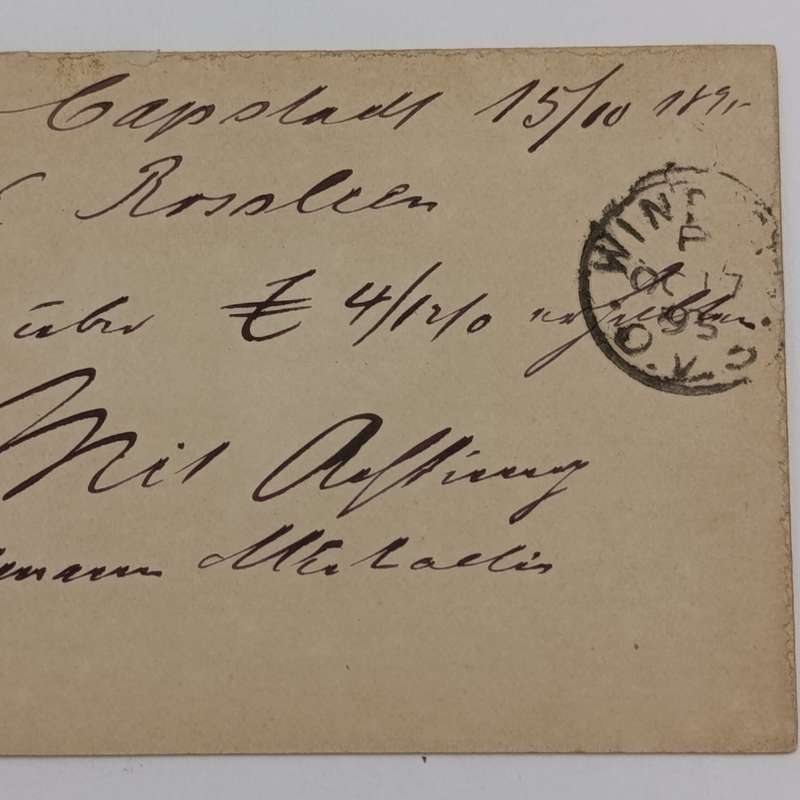 Capstadt 15/10 189
Rossleen
über £ 4/12/0 erhalten.
Mit Achtung
mann Michaelis
WIN
P
OC 17
95
O.V.S.